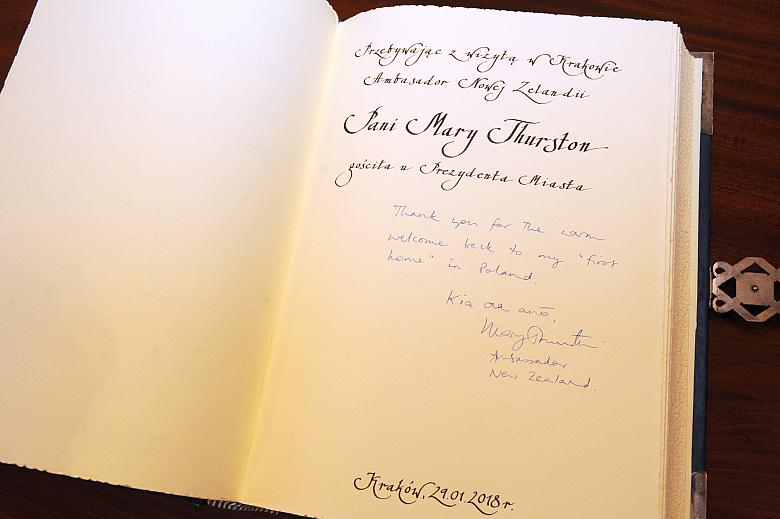 Przebywając z wizytą w Krakowie
Ambasador Nowej Zelandii
Pani Mary Thurston
gościła u Prezydenta Miasta
Thank you for the warm
welcome back to my "first
home" in Poland.
Kia ora anō,
Mary Thurston
Ambassador
New Zealand.
Kraków, 29.01.2018 r.